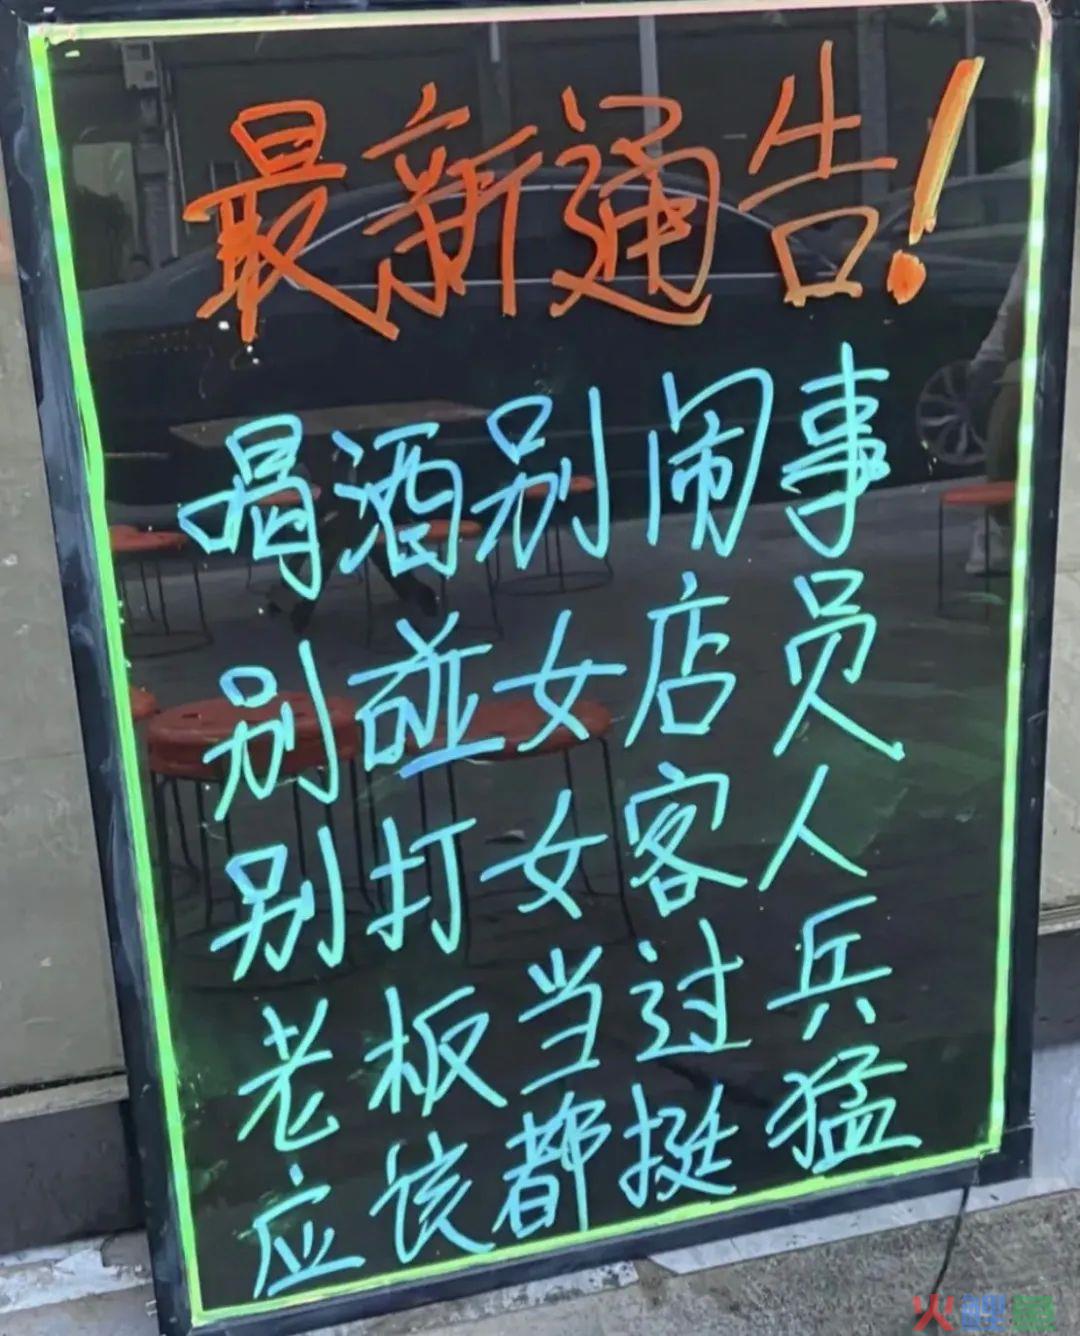 最新通告!
喝酒别闹事
别碰女店员
别打女客人
老板当过兵
应该都挺猛